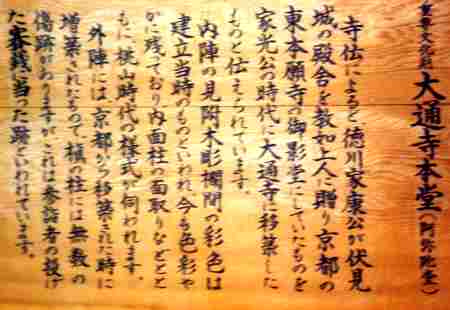 重要文化財 大通寺本堂(阿弥陀堂)
寺伝によると徳川家康公が伏見
城の殿舎を教如上人に贈り京都の
東本願寺の御影堂にしていたものを
家光公の時代に大通寺に移築した
ものと伝えられています。
内陣の見附木彫欄間の彩色は
建立当時のものといわれ、今も色彩や
かに残っており内面柱の面取りなどとと
もに桃山時代の様式が伺われます。
外陣には、京都から移築された時に
増築されたもので、槇の柱には無数の
傷跡がありますが、これは参詣者の投げ
た賽銭に当った跡といわれています。